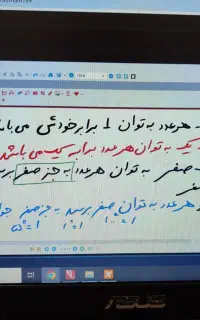 - هر عدد به توان 1 برابر خودش می با
یک به توان هر عدد برابر یک می باشد
- صفر به توان هر عدد به جز صفر برا
هر عدد به توان صفر برسد به جز صفر جوا
5°=1 1°=1 10°=1